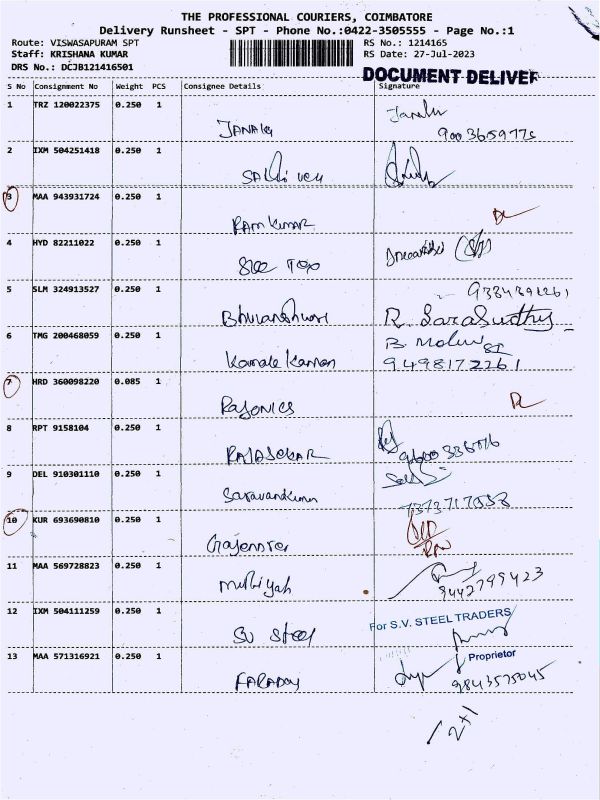 THE PROFESSIONAL COURIERS, COIMBATORE
Delivery Runsheet - SPT - Phone No.:0422-3505555 - Page No.:1
Route: VISWASAPURAM SPT
RS No.: 1214165
Staff: KRISHANA KUMAR
RS Date: 27-Jul-2023
DRS No.: DCJB121416501
DOCUMENT DELIVER
S No Consignment No Weight PCS Consignee Details Signature
1 TRZ 120022375 0.250 1
JANAKI
2 IXM 504251418 0.250 1
3 MAA 943931724 0.250 1
RAMKUMAR
4 HYD 82211022 0.250 1
5 SLM 324913527 0.250 1
R. Sarasudthy
6 TMG 200468059 0.250 1
B
Kamale Kannan 9498172261
7 HRD 360098220 0.085 1
Rasonics
8 RPT 9158104 0.250 1
RAJASEKAR
9 DEL 910301110 0.250 1
Saravankumar
10 KUR 693690810 0.250 1
11 MAA 569728823 0.250 1
Muthiyah 9442799423
12 IXM 504111259 0.250 1
For S.V. STEEL TRADERS
SV Steel
Proprietor
13 MAA 571316921 0.250 1
FARADAY 9843575045
12+1